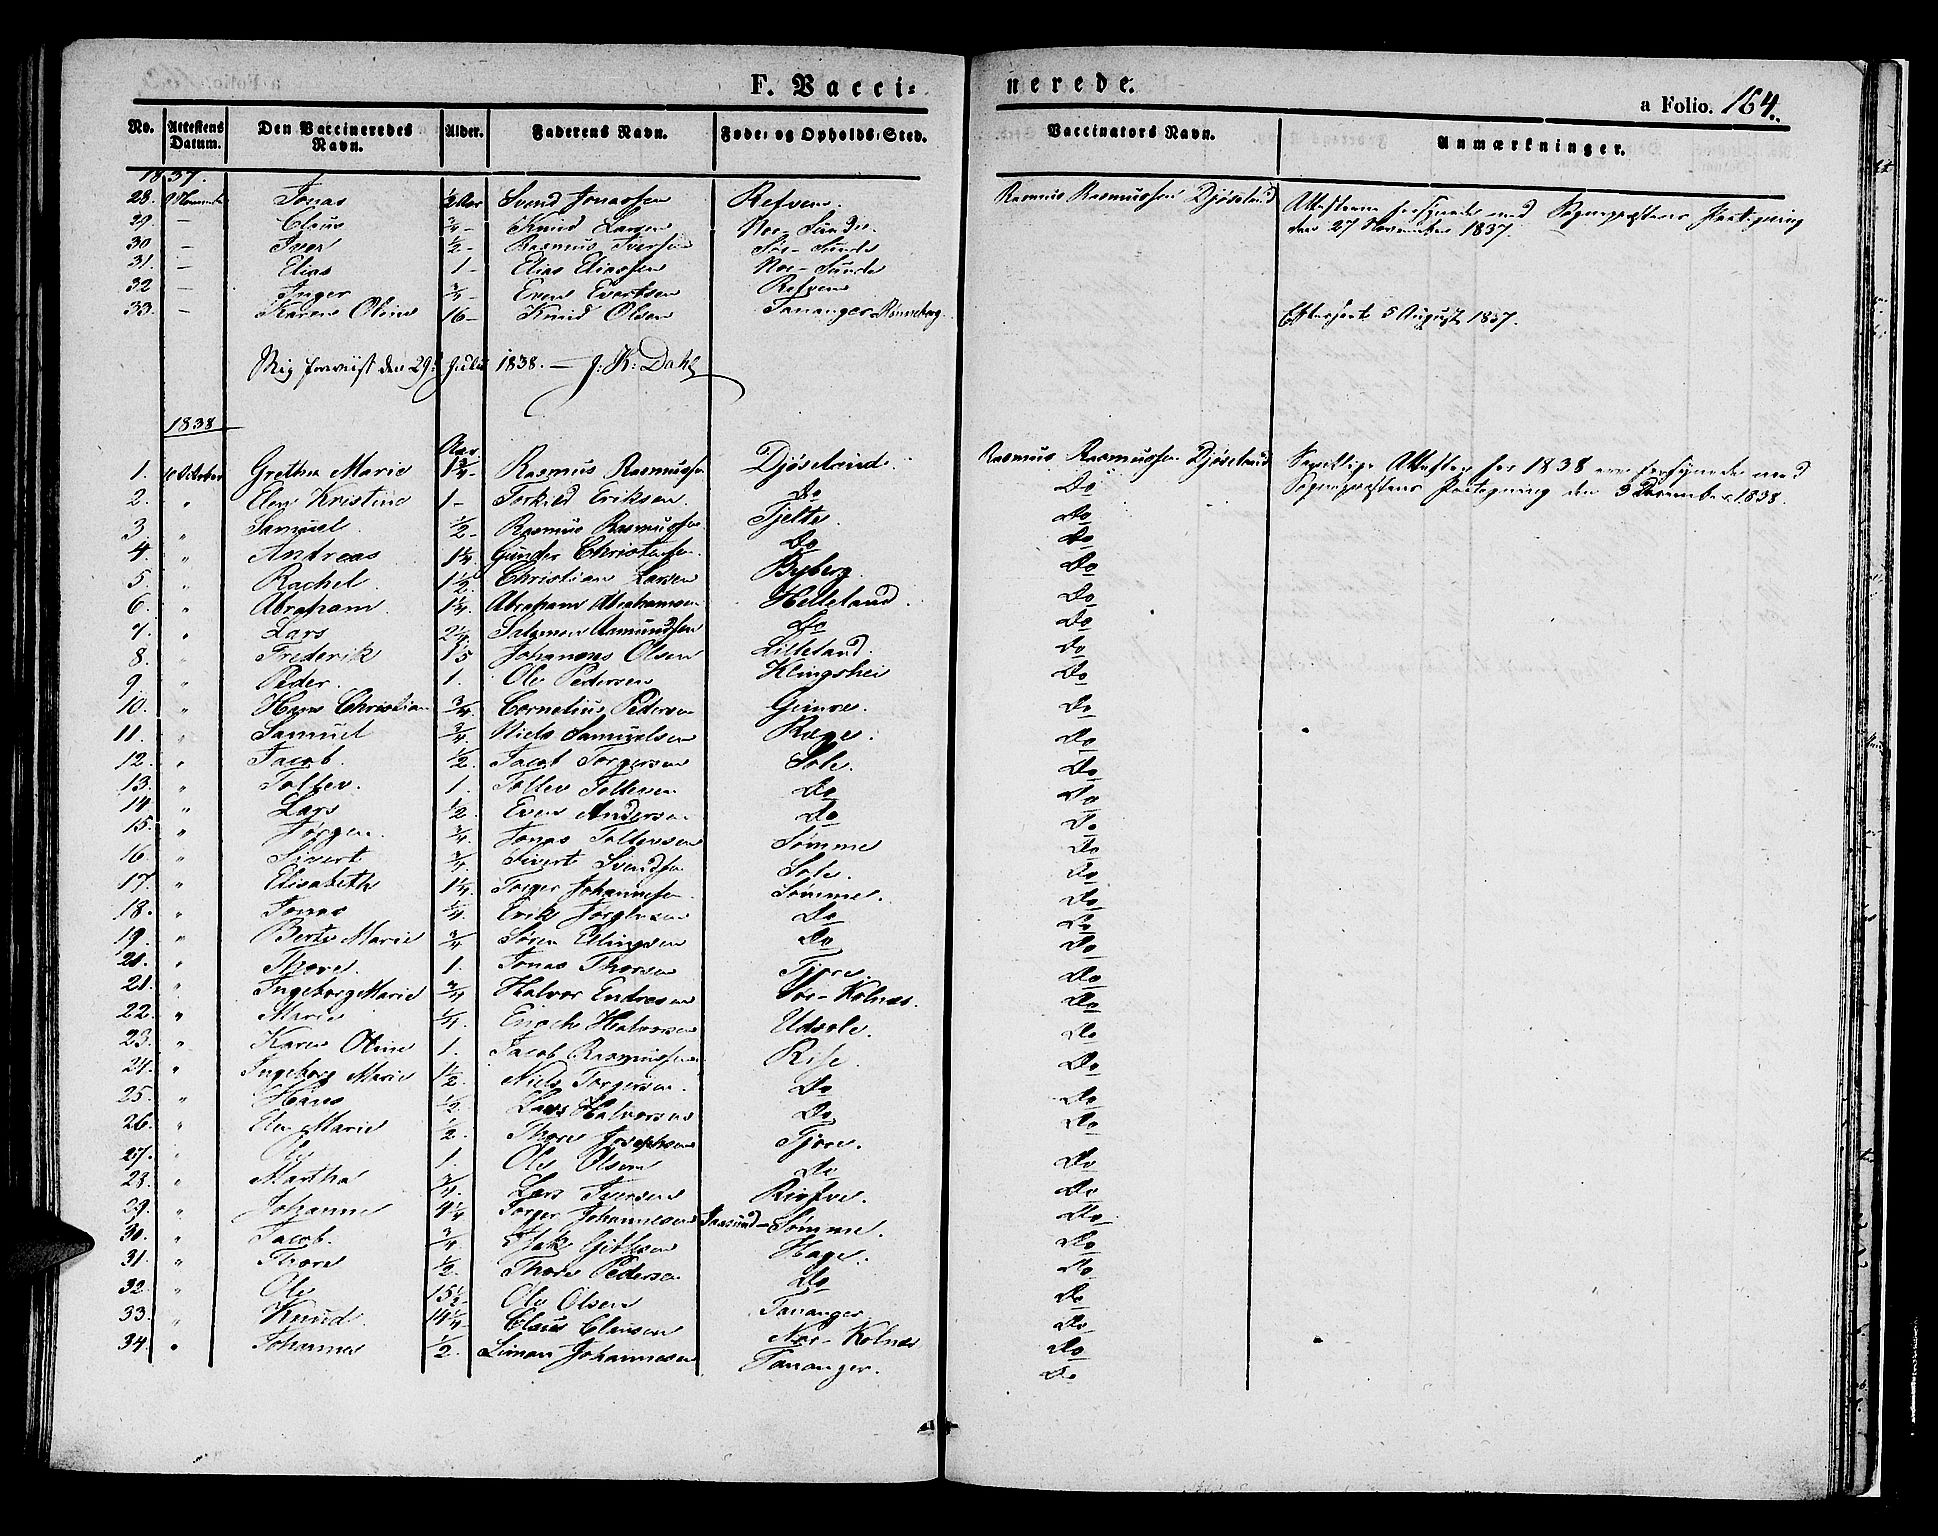 F. Vacci-nerede.
a Folio. 164.
No. Attestens Datum. Den Vaccineredes Navn. Alder. Faderens Navn. Føde- og Opholds-Sted. Vaccinators Navn. Anmærkninger.
1837.
28. Jonas Svend Jonassen Refven Rasmus Rasmussen Djøseland
29. — Claus 3/4 - Knud Larsen Noe-Sunde
den 27 November 1837.
30 — Iver 1/2 - Rasmus Iversen Søe-Sunde
31. — Elias 1 - Elias Eliassen Noe-Sunde
32 — Inger 3/4 - Even Evertsen Refven
33. — Karen Oline 16 - Knud Olsen Tananger 5 August 1837.
Mig foreviist den 29. Julii 1838. — J. K. Dahl
1838
Aar
1. October Grethe Marie 1 3/4 - Rasmus Rasmussen Rasmus Rasmussen Djøseland Samtlige Attester for 1838 ere forsynede med
2. " Elen Kristine 1 - Torkild Eriksen Do Do Sognepræstens Paategning den 3 December 1838.
3 " Samuel 1/2 - Rasmus Rasmussen Tjelte Do
4. " Andreas 1 1/4 Gunder Christensen Do Do
5 " Rachel 1 1/2 Christian Larsen Byberg Do
6. " Abraham 1 1/4 Abraham Abrahamsen Helleland Do
7. " Lars 2 1/4 Salomon Aamundsen Do Do
8. " Frederik 15 Johannes Olsen Lilleland Do
9 " Peder 1. Ole Pedersen Klingshei Do
10. " Hans Christian 3/4 Cornelius Pedersen Gimre. Do
11. " Samuel 3/4 Niels Samuelsen Ræge. Do
12. " Jacob. 1/2 Jacob Torgersen Sole. Do
13. " Tollev. 1. Tollev Tollevsen Do Do
14. " Lars 1/2 Even Andersen Do Do
15. " Jørgen 3/4 Jonas Tollevsen Sømme Do
16. " Sivert 3/4 Sivert Svendsen Sole. Do
17. " Elisabeth 1 1/4 Torger Johannesen Sømme. Do
18. " Jonas 1/4 Erik Jørgensen Do Do
19. " Berte Marie 3/4 Søren Ellingsen Do Do
20. " Thore 1. Jonas Thorsen Tjore. Do
21. " Ingeborg Marie 3/4 Halvor Endresen Søe-Kolnæs. Do
22. " Marie 1/4 Enoch Halvorsen Udsole. Do
23. " Karen Oline 1. Jacob Rasmussen Rise. Do
24. " Ingeborg Marie 1 1/2 Niels Torgersen. Do Do
25. " Hans 1/2 Lars Halvorsen Do Do
26. " Elen Marie 1/2 Thore Josephsen Tjore. Do
27. " Ole 1. Ole Olsen Do Do
28. " Martha 3/4 Lars Iversen Do
29. " Johanne 4 1/4 Torger Johannesen Sømme. Do
30. " Jacob. 3/4 Gitlesen Hage. Do
31. " Thore 1/2 Thore Pedersen Do Do
32. " Ole 15 1/2 Ole Olsen Tananger Do
33. " Knud 14 1/4 Claus Clausen Noe-Kolnæs Do
34. " Johannes 1/2. Simon Johannesen Tananger. Do
Do